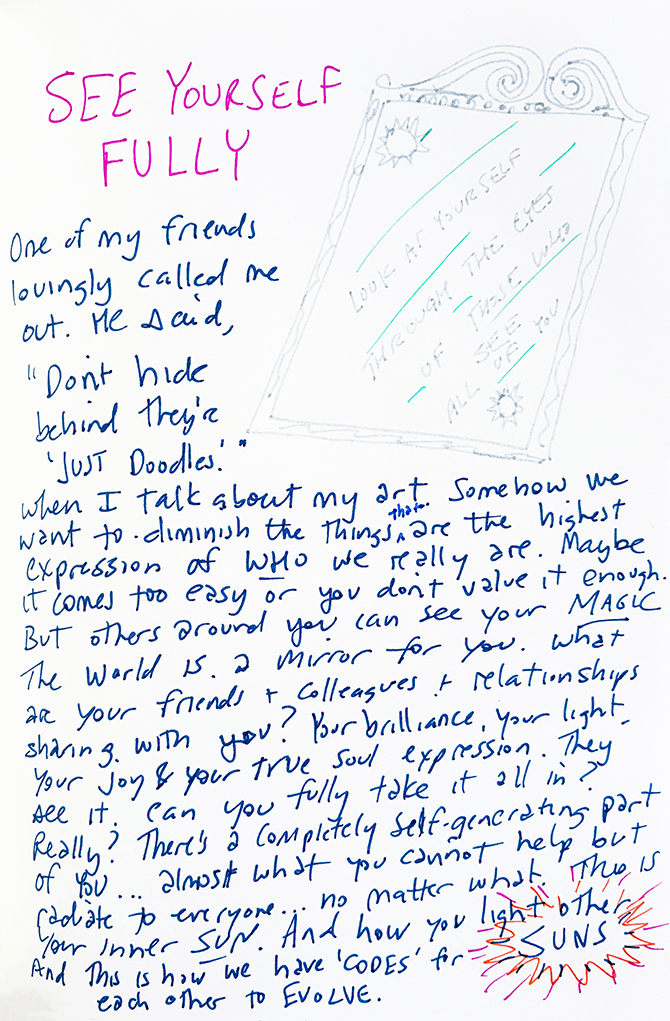 SEE YOURSELF
FULLY
LOOK AT YOURSELF
THROUGH THE EYES
OF THOSE WHO
SEE
ALL OF YOU
One of my friends
lovingly called me
out. He said,
"Don't hide
behind they're
'JUST Doodles.'"
when I talk about my art. Somehow we
want to diminish the things that are the highest
expression of WHO we really are. Maybe
it comes too easy or you don't value it enough.
But others around you can see your MAGIC
The world is a mirror for you. What
are your friends + colleagues + relationships
sharing with you? Your brilliance, your light,
your joy & your true soul expression. They
see it. Can you fully take it all in?
Really? There's a completely self-generating part
of you... almost what you cannot help but
radiate to everyone... no matter what. This is
your inner SUN. And how you light other
SUNS
And this is how we have 'CODES' for
each other to EVOLVE.